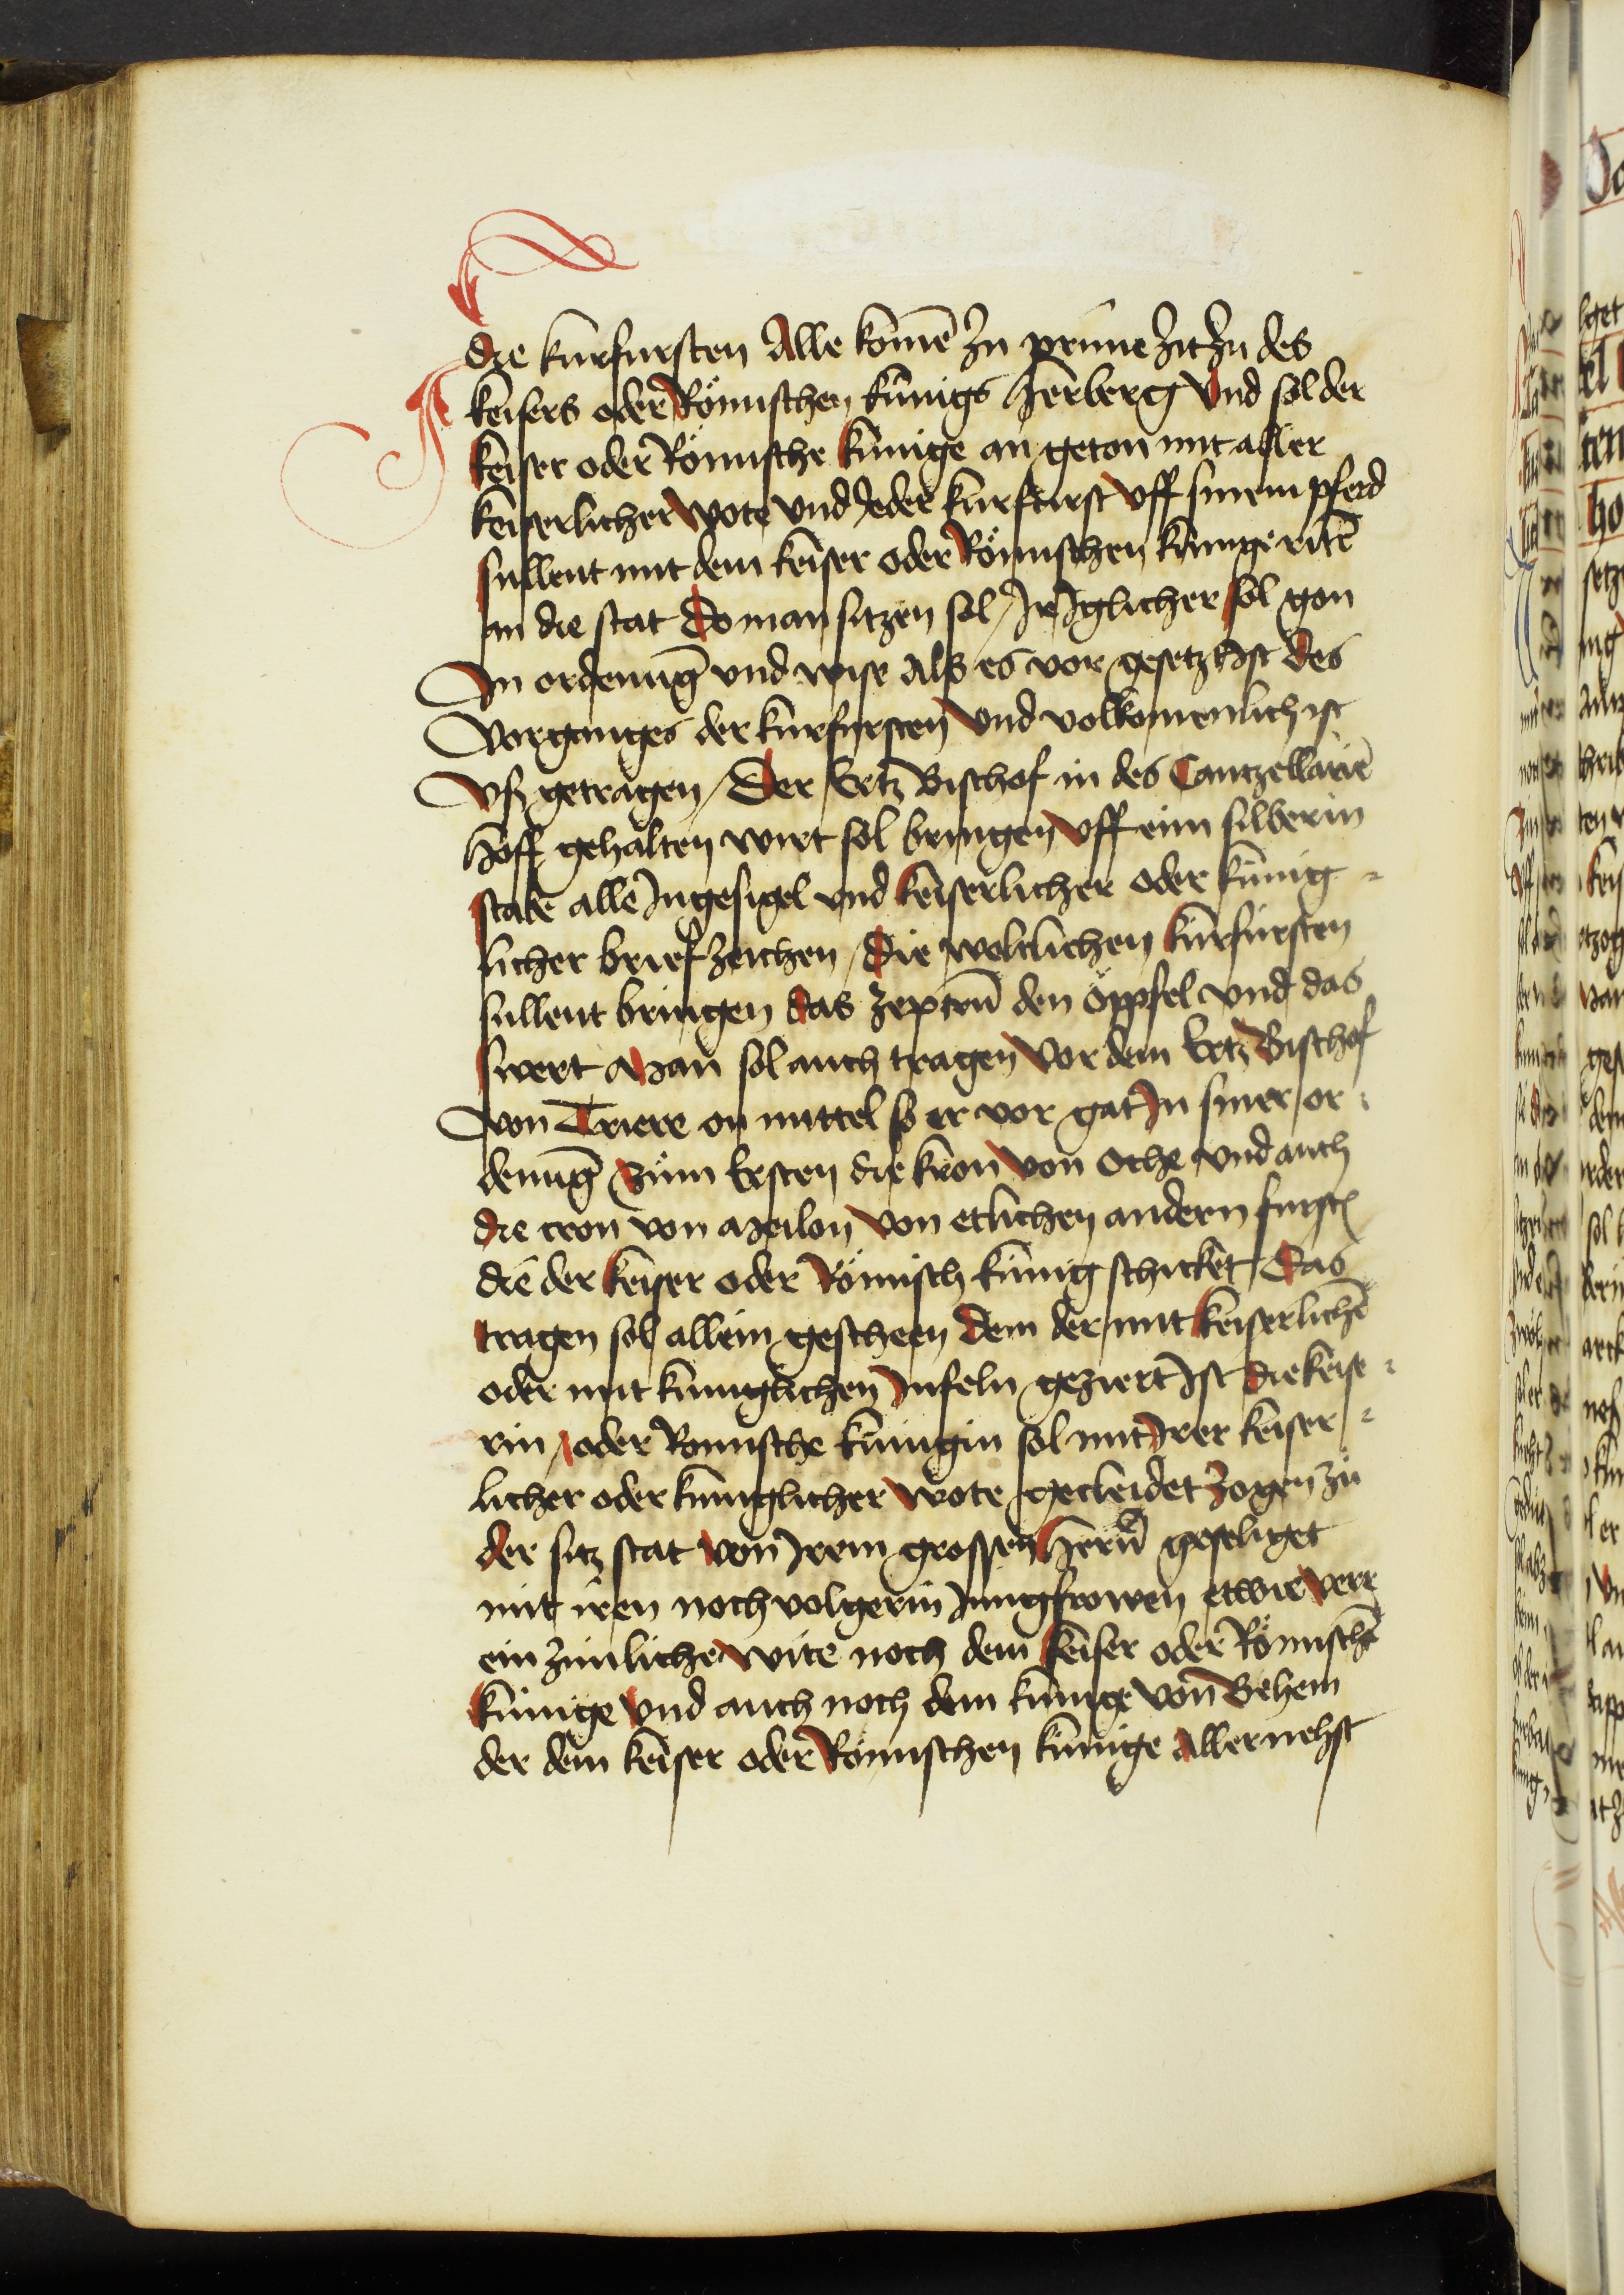 die kurfursten Alle komē zu prime zit zu des
keisers oder Römischen künigs herberg Vnd sol der
keiser oder Römische künige an geton mit aller
keiserlicher wote vnd Jeder kurfurst vff sinem pferd
sullent mit dem keiser oder Römischen künige ritē
an die stat Do man sitzen sol / Ir Iglicher sol gon
In ordenūg vnd wise Als es vor gesetzt Ist des
Vorganges der kurfursten Vnd volkomenlich ist
Vsz getragen / Der Ertz Bischof in des Cantzellariē
hoff gehalten wirt sol bringen vff eim silberin
stabe alle Ingesigel vnd keiserlicher oder künig⸗
licher brief zeichen / Die weltlichen kürfürsten
sullent bringen das Zeptrū den öppfel vnd das
swert Man sol auch tragen Vor dem Ertz Bischof
von Triere on mittel so er vor gat In siner or⸗
denūg Züm Ersten die kron von Oche vnd auch
die cron von Meilon von etlichen andern furstē
die der keiser oder Römisch künig schicket Das
tragen sol allein gescheen Dem der mit keiserlichē
oder mit kuniglichen Infeln geziert Ist die keise⸗
rin / oder Romische künigin sol mit Irer keiser⸗
licher oder kuniglicher wote gecleidet Zogen zü
der sitz stat von Irem grossen Herrū geselliget
mit iren noch volgerin Jungfrowen etwie verr
ein zimliche wite noch dem keiser oder Römischē
künige Vnd auch noch dem künige von Behem
der dem keiser oder Römischen künige Aller nehst